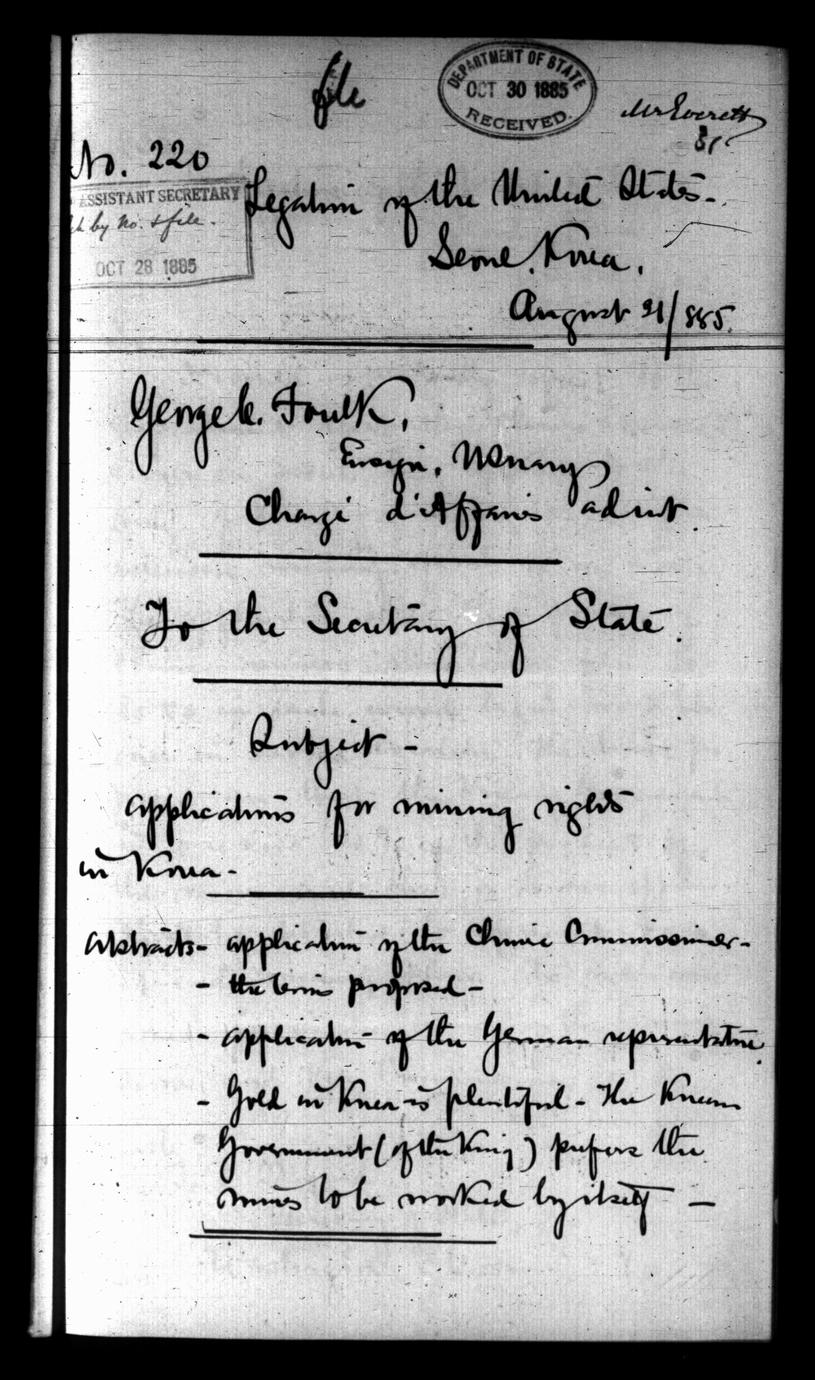 file
DEPARTMENT OF STATE
OCT 30 1885
RECEIVED.
Mr Everett
No. 220
ASSISTANT SECRETARY
by No. & file.
OCT 28 1885
Legation of the United States.
Seoul, Korea,
August 21/885.
George C. Foulk,
Ensign, U.S. Navy
Chargé d'Affaires ad int.
To the Secretary of State.
Subject -
applications for mining rights
in Korea -
Abstracts - application of the Chinese Commissioner -
- the terms proposed -
- application of the German representative.
- Gold in Korea is plentiful - The Korean
Government (of the King) prefers the
mines to be worked by itself -